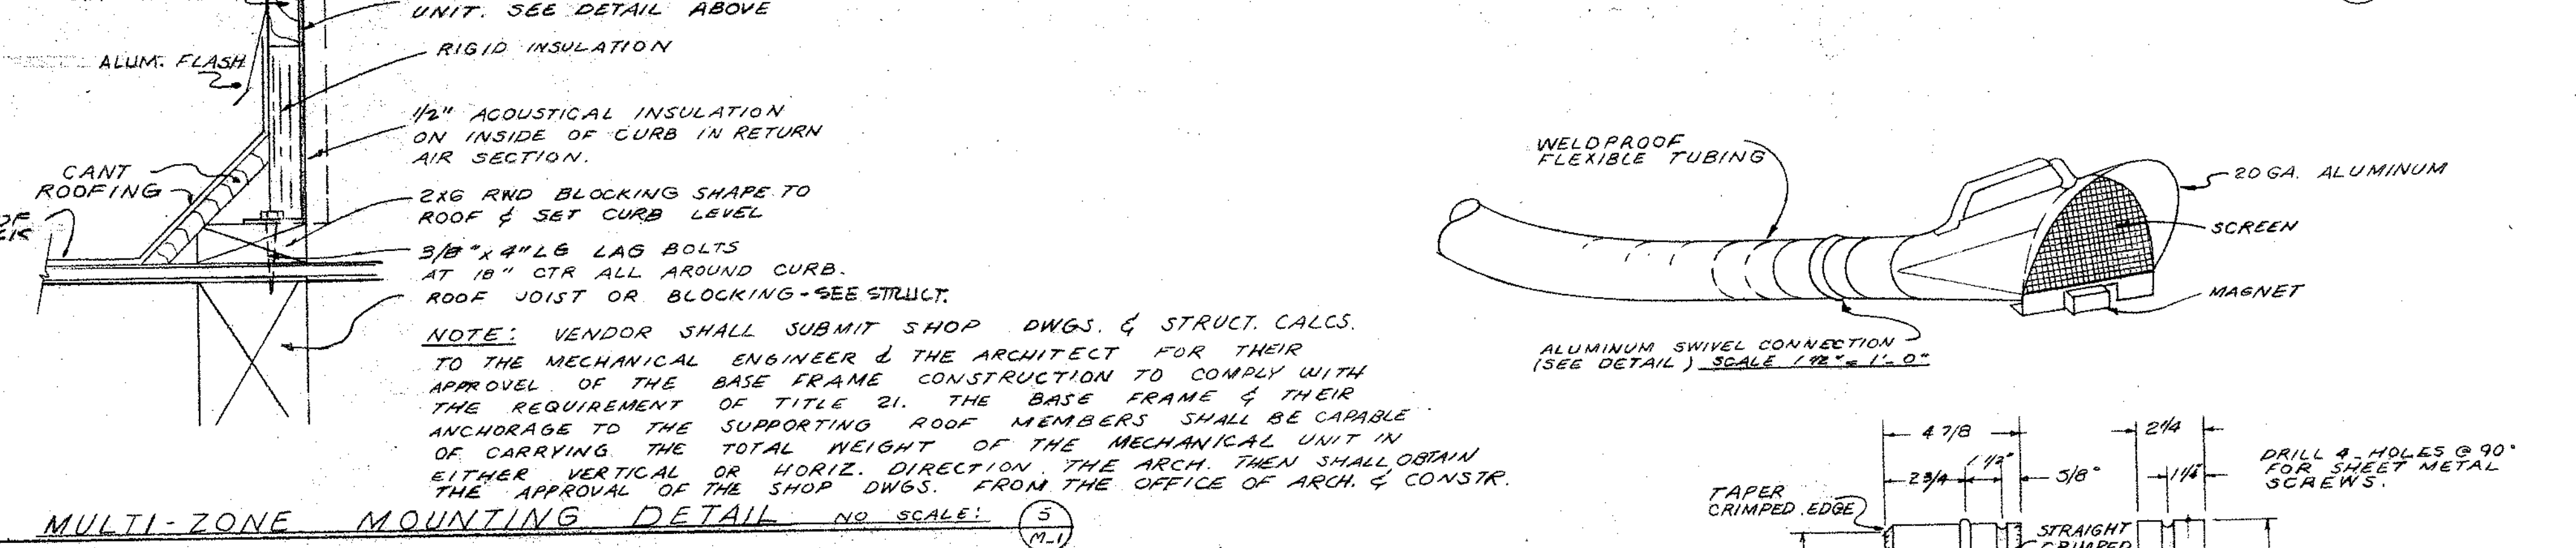 UNIT. SEE DETAIL ABOVE
RIGID INSULATION
ALUM. FLASH
1/2" ACOUSTICAL INSULATION
ON INSIDE OF CURB IN RETURN
AIR SECTION.
CANT
ROOFING
2X6 RWD BLOCKING SHAPE TO
ROOF & SET CURB LEVEL
3/8" x 4" LG LAG BOLTS
AT 18" CTR ALL AROUND CURB.
ROOF JOIST OR BLOCKING - SEE STRUCT.
NOTE: VENDOR SHALL SUBMIT SHOP DWGS. & STRUCT. CALCS.
TO THE MECHANICAL ENGINEER & THE ARCHITECT FOR THEIR
APPROVEL OF THE BASE FRAME CONSTRUCTION TO COMPLY WITH
THE REQUIREMENT OF TITLE 21. THE BASE FRAME & THEIR
ANCHORAGE TO THE SUPPORTING ROOF MEMBERS SHALL BE CAPABLE
OF CARRYING THE TOTAL WEIGHT OF THE MECHANICAL UNIT IN
EITHER VERTICAL OR HORIZ. DIRECTION. THE ARCH. THEN SHALL OBTAIN
THE APPROVAL OF THE SHOP DWGS. FROM THE OFFICE OF ARCH. & CONSTR.
MULTI-ZONE MOUNTING DETAIL NO SCALE:
5
M-1
WELDPROOF
FLEXIBLE TUBING
20 GA. ALUMINUM
SCREEN
MAGNET
ALUMINUM SWIVEL CONNECTION
(SEE DETAIL) SCALE 1 1/2" = 1'-0"
4 7/8
2 1/4
1 1/2"
2 3/4
5/8"
DRILL 4-HOLES @ 90°
FOR SHEET METAL
SCREWS.
TAPER
CRIMPED EDGE
STRAIGHT
CRIMPED